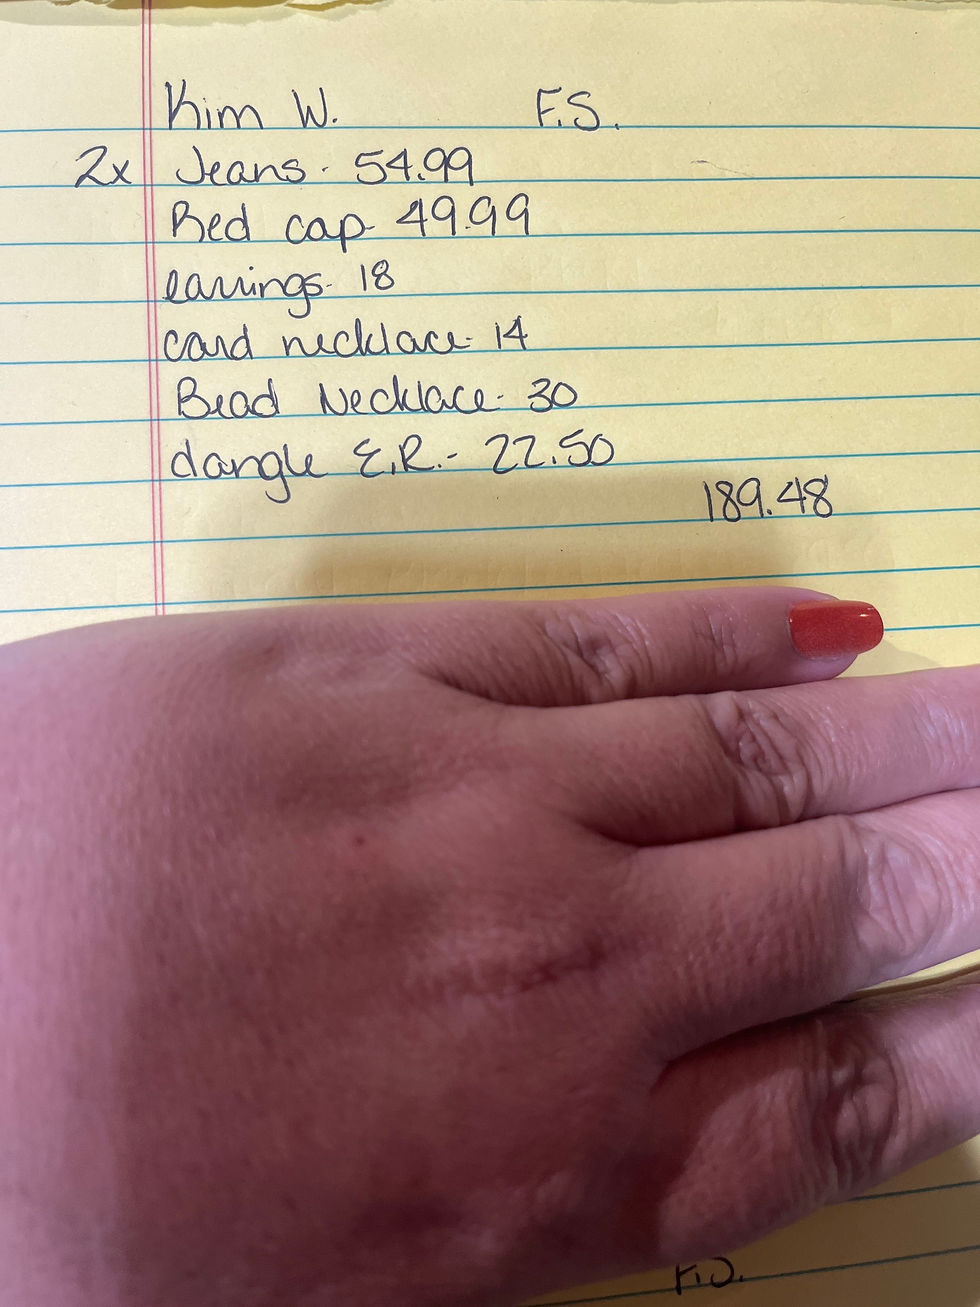 Kim W. F.S.
2x Jeans - 54.99
Red cap - 49.99
earrings - 18
card necklace - 14
Bead Necklace - 30
dangle E.R. - 22.50
189.48